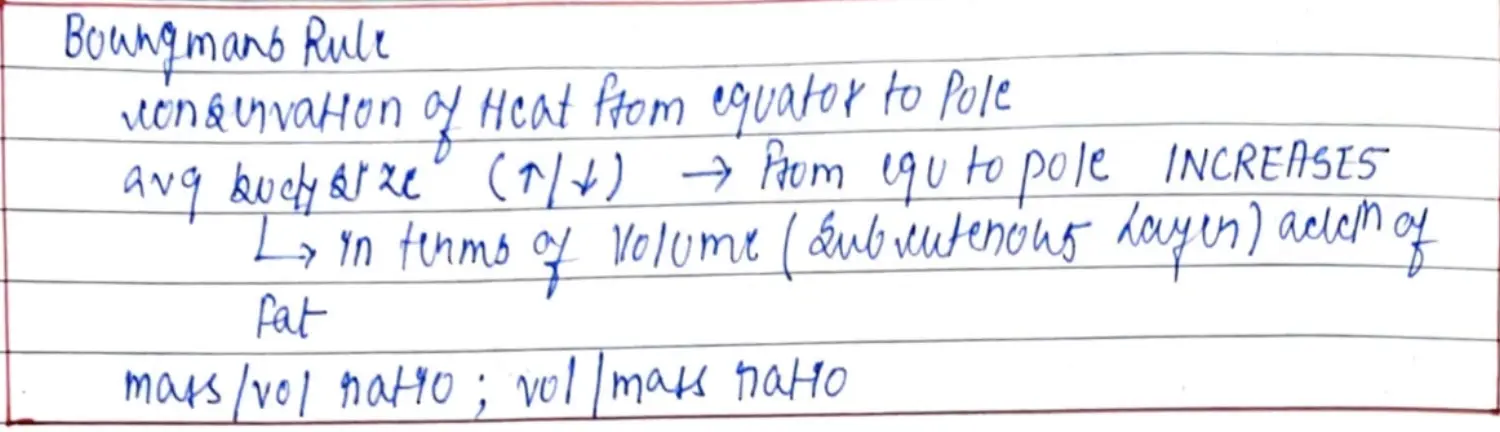 Boungmans Rule
conservation of Heat from equator to Pole
avg body size (↑/↓) → from equ to pole INCREASES
↳ in terms of Volume (Subcutenous Layer) addⁿ of
fat
mass/vol ratio ; vol/mass ratio